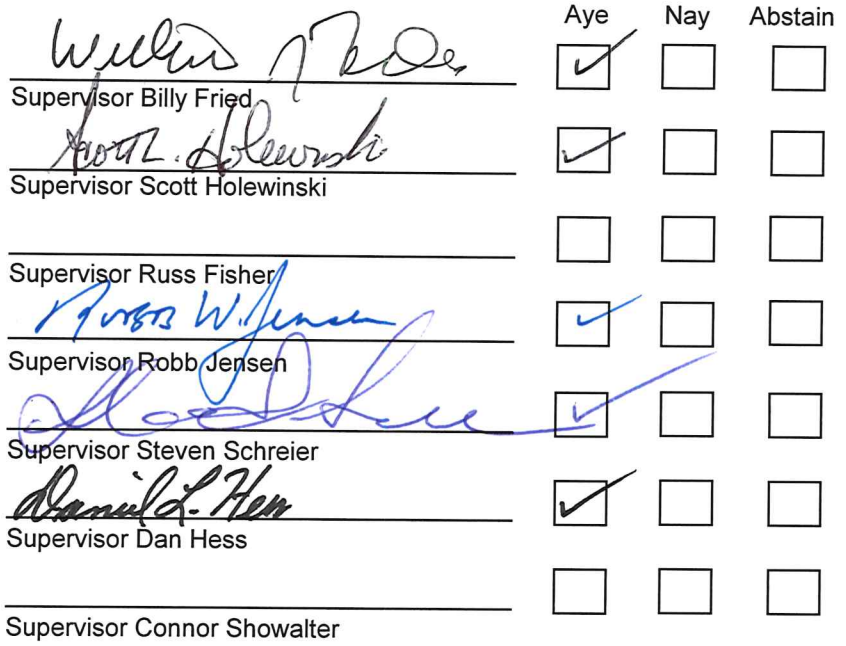 Aye Nay Abstain
Supervisor Billy Fried
Scott L. Holewinski
Supervisor Scott Holewinski
Supervisor Russ Fisher
Robb W. Jensen
Supervisor Robb Jensen
Supervisor Steven Schreier
Daniel L. Hess
Supervisor Dan Hess
Supervisor Connor Showalter